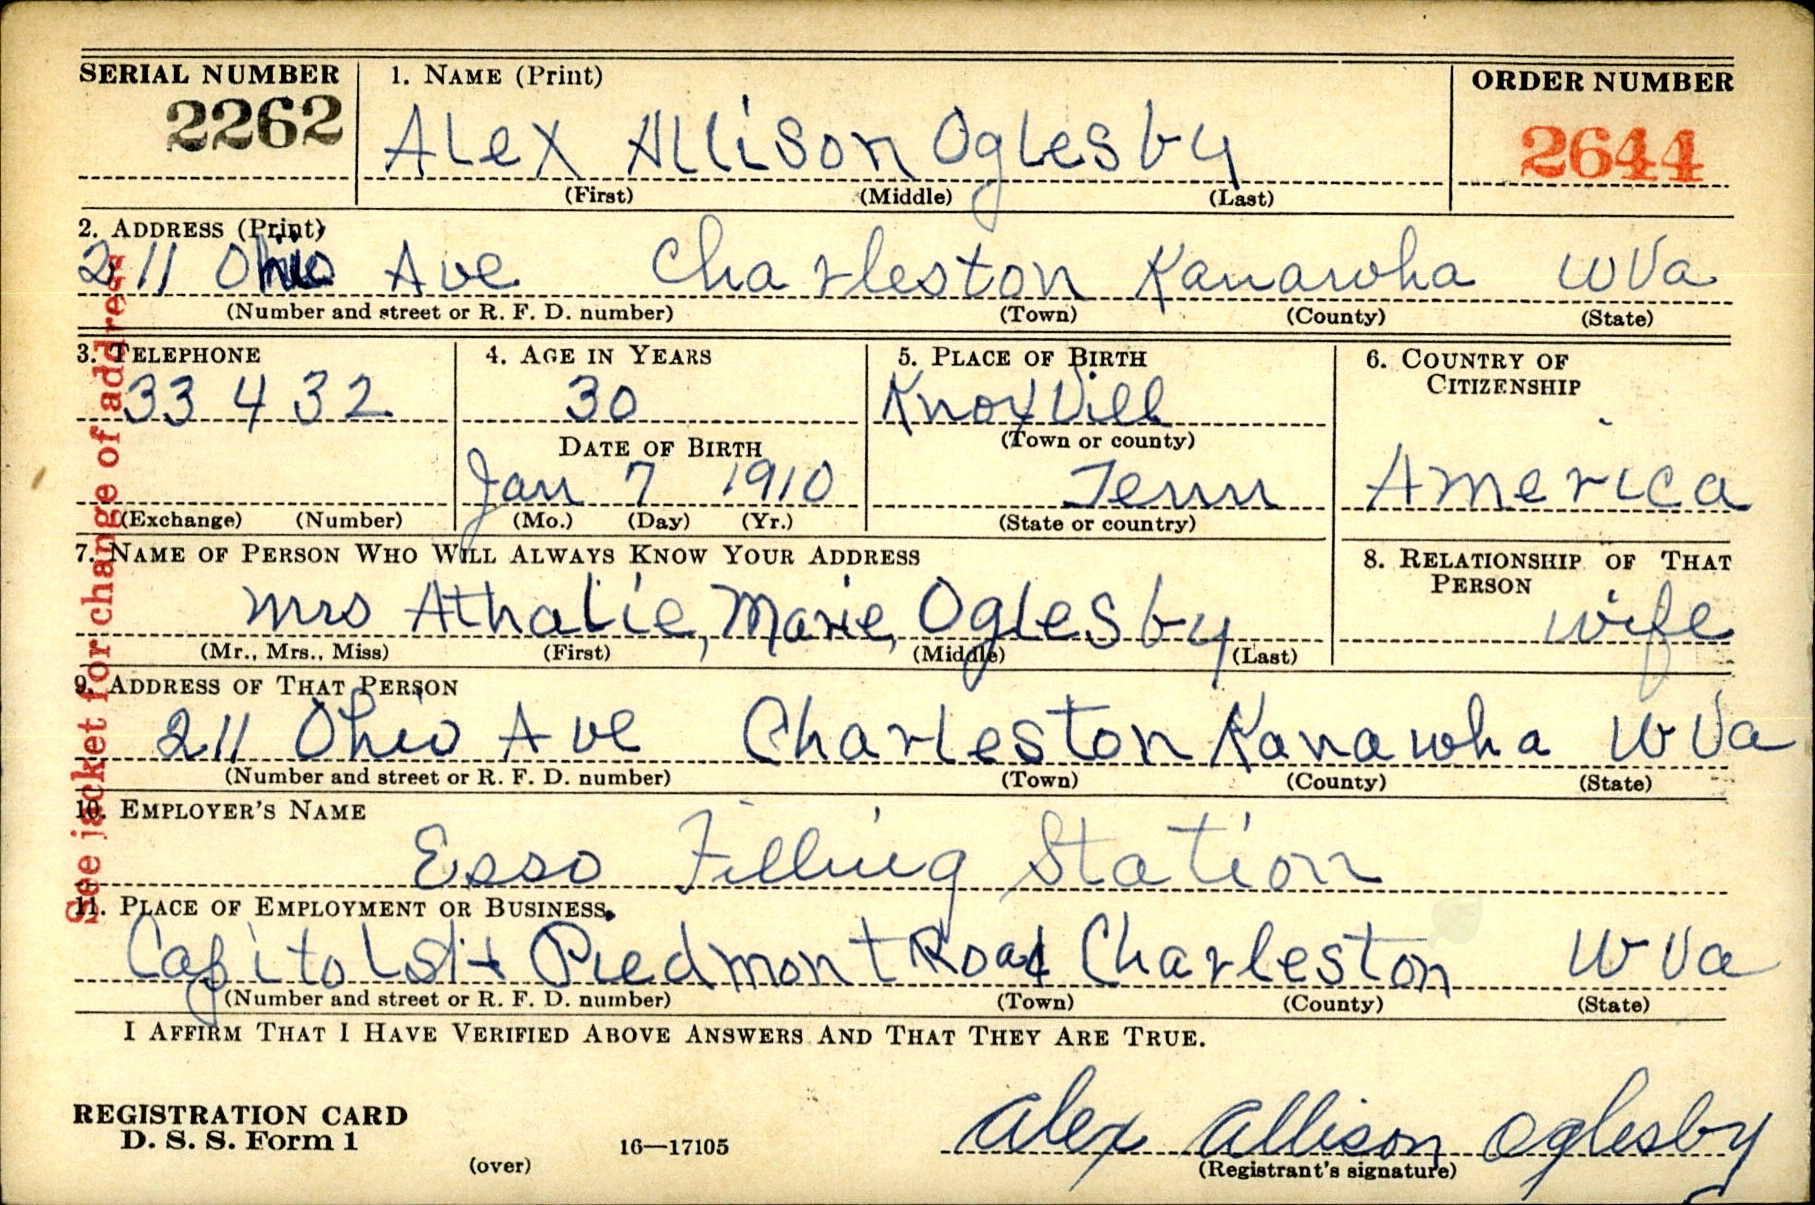 SERIAL NUMBER
2262
1. NAME (Print)
Alex Allison Oglesby
(First) (Middle) (Last)
ORDER NUMBER
2644
2. ADDRESS (Print)
211 Ohio Ave Charleston Kanawha W Va
(Number and street or R. F. D. number) (Town) (County) (State)
3. TELEPHONE
33432
(Exchange) (Number)
4. AGE IN YEARS
30
DATE OF BIRTH
Jan 7 1910
(Mo.) (Day) (Yr.)
5. PLACE OF BIRTH
Knoxvill
(Town or county)
Tenn
(State or country)
6. COUNTRY OF
CITIZENSHIP
America
7. NAME OF PERSON WHO WILL ALWAYS KNOW YOUR ADDRESS
Mrs Athalie, Marie, Oglesby
(Mr., Mrs., Miss) (First) (Middle) (Last)
8. RELATIONSHIP OF THAT
PERSON
wife
9. ADDRESS OF THAT PERSON
211 Ohio Ave Charleston Kanawha W Va
(Number and street or R. F. D. number) (Town) (County) (State)
10. EMPLOYER'S NAME
Esso Filling Station
11. PLACE OF EMPLOYMENT OR BUSINESS
Capitol St + Piedmont Road Charleston W Va
(Number and street or R. F. D. number) (Town) (County) (State)
I AFFIRM THAT I HAVE VERIFIED ABOVE ANSWERS AND THAT THEY ARE TRUE.
REGISTRATION CARD
D. S. S. Form 1
(over)
16—17105
Alex Allison Oglesby
(Registrant's signature)
See jacket for change of address